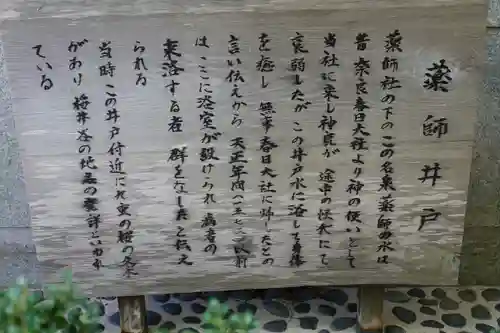 薬師井戸
薬師社の下のこの名泉「薬師の水」は
昔 奈良春日大社より神の使いとして
当社に来し神鹿が 途中の怪我にて
衰弱したがこの井戸水に浴して傷
を癒し 無事春日大社に帰したとの
言い伝えから 天正年間(一五七三)以前
は ここに浴室が設けられ 病者の
来浴する者 群をなしたと伝え
られる
当時 この井戸付近に九重の桜の名木
があり 桜井谷の地名の発祥といわれ
ている